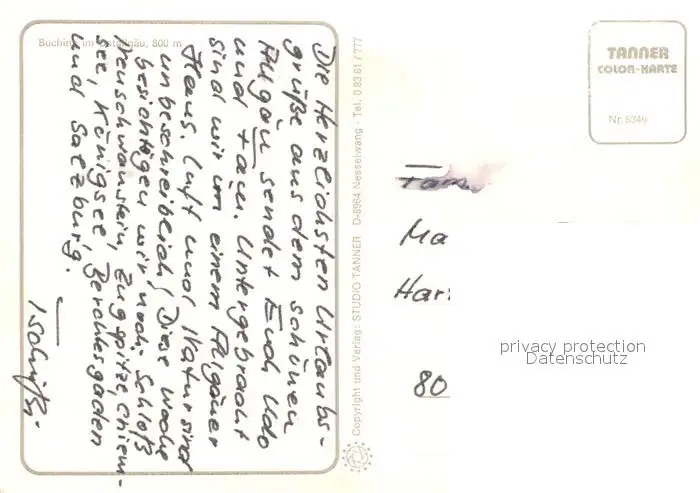 Buching im Ostallgäu, 800 m
Die Herzlichsten Urlaubs-
grüße aus dem schönen
Allgäu sendet Euch Udo
und Fam. Untergebracht
sind wir in einem Allgäuer
Haus. Luft und Natur sind
unbeschreiblich! Diese Woche
besichtigen wir noch: Schloß
Neuschwanstein, Zugspitze, Chiem-
see, Königsee, Berchtesgaden
und Salzburg.
Tschüß.
Copyright und Verlag: STUDIO TANNER D-8964 Nesselwang - Tel. 0 83 61 / 777
TANNER
COLOR-KARTE
Nr. 5346
Fam.
Ma
Har
80
privacy protection
Datenschutz